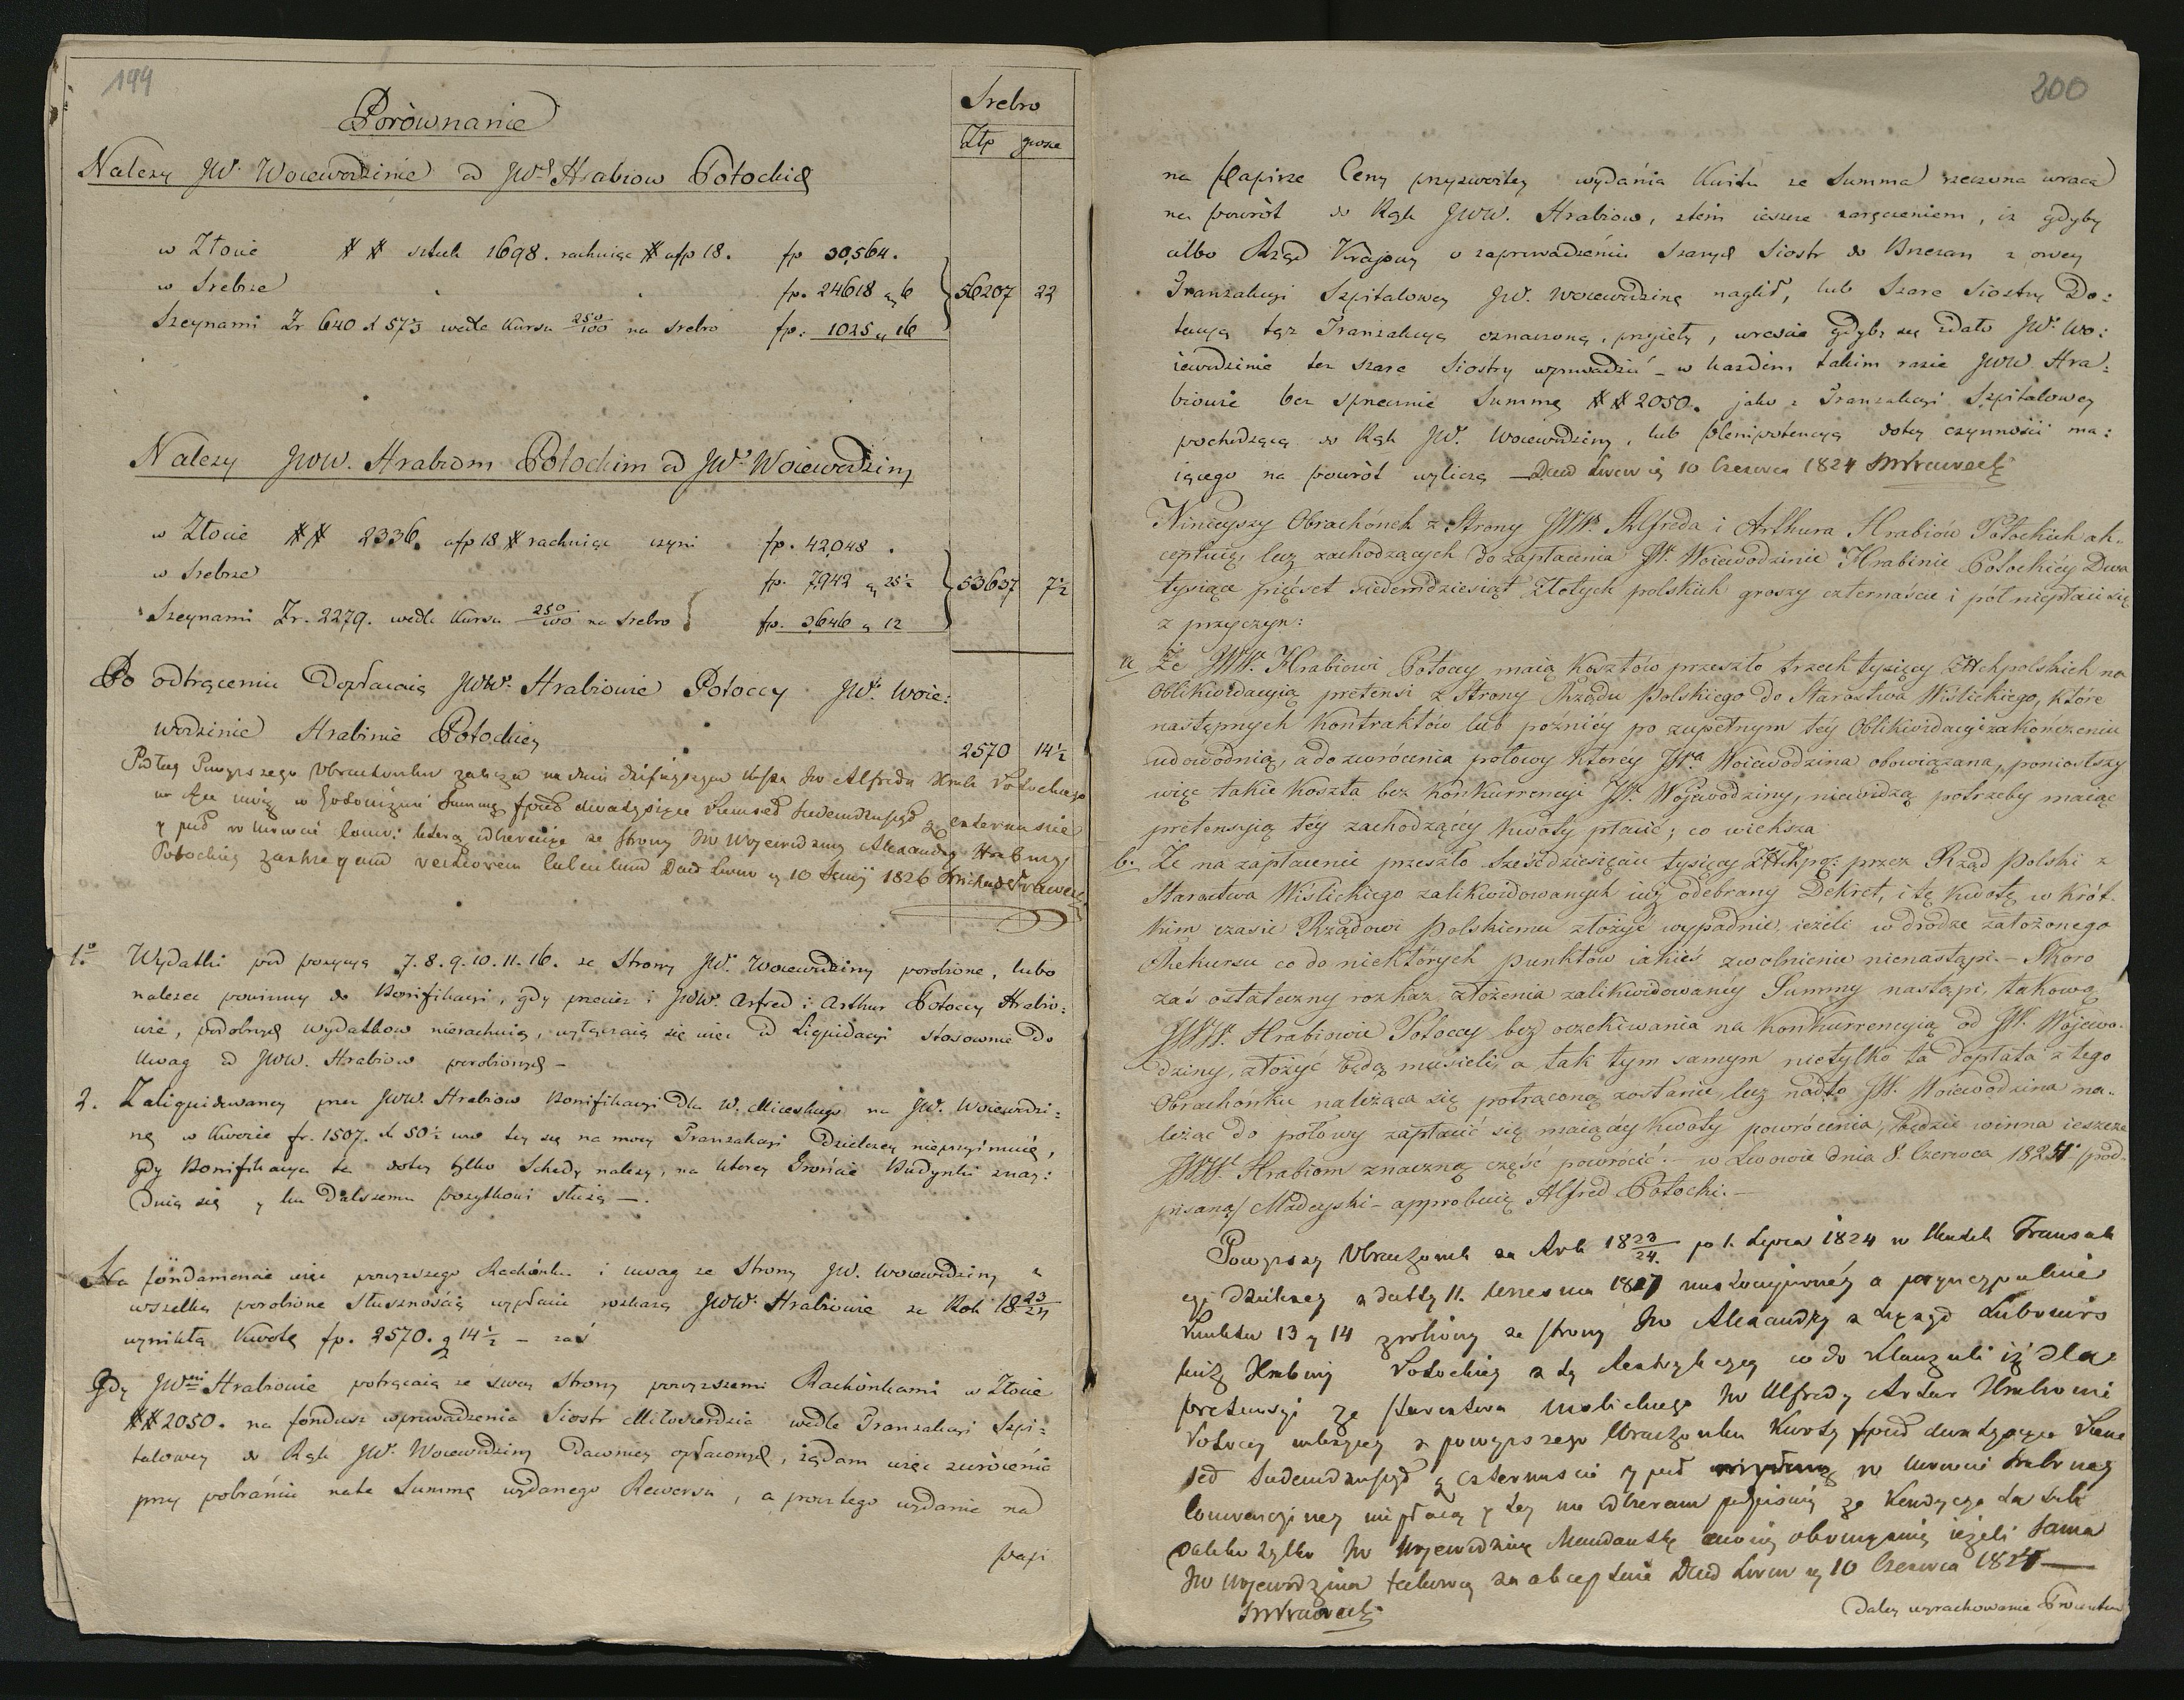 199
Porównanie
Srebro
Złp grosze
Nalezy JW. Woiewodzinie od JWch Hrabiow Potockich
w Złocie ## sztuk 1698. rachuiąc # afp 18. fp 30,564.
w Srebrze fp. 24618 g 6 56207 22
Szeynami Zr 640 x 57 2/3 wedle Kursu 250/100 na srebro fp: 1025 g 16
Nalezy JWW. Hrabiom Potockim od JWey Woiewodziny
w Złocie ## 2336. afp 18 # rachuiąc czyni fp. 42,048.
w Srebrze fp. 7942 g 25½ 53637 7½
Szeynami Zr. 2279. wedle Kursu 250/100 na srebro fp. 3,646 g 12
Po odtrąceniu Dopłacaią JWW. Hrabiowie Potoccy JWey Woie:
wodzinie Hrabinie Potockiey 2570 14½
Podług Powyzszego Obrachunku JW Alfreda Hrab Potockiego
Summę dwa tysiące siedmdziesiąt g czternascie
y puł w monecie ze strony JW Woiewodziny Alexandry Hrabiny
Potockiey Lwow 10 1826
1o. Wydatki pod pozycyą 7. 8. 9. 10. 11. 16. ze Strony JW. Woiewodziny porobione, lubo
nalezec powinny do Bonifikacyi, gdy przeciez i JWW. Alfred i Arthur Potoccy Hrabio:
wie, podobnych wydatkow nierachuią, wyłączaią się więc od Liquidacyi stosownie do
Uwag od JWW. Hrabiow porobionych –
2. Zaliquidowaney przez JWW. Hrabiow Bonifikacyi Dla W. Mireckiego na JW. Woiewodzi:
nę w kwocie fr. 1507. x 50½ tey się na mocy Tranzakcyi Dzielczey nieprzyimuię,
gdy Bonifikacya ta dotey tylko Schedy nalezy, na ktorey Gróncie Budynki znay:
duią się y ku Dalszemu pozytkowi słuzą –.
Na fóndamencie więc powyzszego Rachónku i uwag ze Strony JW. Woiewodziny z
wszelką porobione słusznością wypłacic rozkazą JWW. Hrabiowie za Rok 18 23/24
wynikłą Kwotę fp. 2570. g 14½ – zaś
Gdy JWni Hrabiowie potrącaią ze swey strony powyzszemi Rachónkami w Złocie
## 2050. na fondusz wprowadzenia Siostr Miłosierdzia wedle Tranzakcyi Szpi:
talowey do Rąk JW. Woiewodziny Dawniey opłaconych, ządam więc zwrócenia
przy pobrániu nate Summę wydanego Rewersu, a procz tego wydania na
papi
200
na papirze Ceny przyzwoitey wydánia Kwitu ze Summa rzeczona wraca
na powrót do Rąk JWW. Hrabiow, ztém ieszcze zaręczeniem, iz gdyby
albo Rząd Krajowy o zaprowadzeniu Szarych Siostr do Brzezan z owey
Tranzakcyi Szpitalowey JW. Woiewodzinę naglił, lub Szare Siostry Do:
tacyą tąz Tranzakcyą oznaczoną, przyięły, wreście gdyby się zdało JWey Wo:
iewodzinie tez szare Siostry wprowadzić – w kazdém takim razie JWW Hra:
biowie bez sprzecznie Summę ## 2050. jako z Tranzakcyi Szpitalowey
pochodzącą do Rąk JW. Woiewodziny, lub plenipotencyą dotey czynności ma:
iącego na powrót wyliczą – Dano Lwow d 10 Czerwca 1824
Ninieyszy Obrachónek z Strony JWW. Alfreda i Arthura Hrabiów Potockich ak-
ceptuię, lecz zachodzących do zapłacenia JW. Woiewodzinie Hrabinie Potockiéy Dwa
tysiące pięćset siedemdziesiąt Złotych polskich groszy czternaście i pół niepłaci się
z przyczyn:
a. Że JWW. Hrabiowi Potoccy maią kosztów przeszło trzech tysięcy ZłRchpolskich na
Oblikwidacyią pretensi z Strony Rządu Polskiego do Starostwa Wiślickiego, które
następnych Kontraktów lub poźniéy po zupełnym téy Oblikwidacyi zakończeniu
udowodnią, a do zwrócenia połowy któréy JWa Woiewodzina obowiązana, poniosłszy
więc takie koszta bez Konkurrencyi JW. Wojewodziny, niewidzą potrzeby maiąc
pretensyią téy zachodzącéy kwoty płacić; co większa
b. Że na zapłacenie przeszło sześćdziesięciu tysięcy przez Rząd Polski z
Starostwa Wiślickiego zalikwidowanych iuż odebrany Dekret, i tę kwotę w krót-
kim czasie Rządowi Polskiemu złożyć wypadnie, ieżeli w drodze założonego
Rekursu co do niektórych punktów iakieś zwolnienie nienastąpi. – Skoro
zaś ostateczny rozkaz złożenia zalikwidowanéy Summy nastąpi, takową
JWW. Hrabiowie Potoccy bez oczekiwania na konkurrencyią od JW. Wojewo-
dziny, złożyć będą musieli, a tak tym samym nietylko ta dopłata z tego
Obrachónku należąca się potrąconą zostanie, lecz nadto JW. Woiewodzina na-
leżąc do połowy zapłacić się maiącéy kwoty powrócenia, będzie winna ieszcze
JWW. Hrabiom znaczną część powrócić. – w Lwowie dnia 8. Czerwca 1825 /pod-
pisany/ Madeyski – approbuię Alfred Potocki. –
Powyzszy Obrachonek za Rok 18 23/24 po 1. Lipca 1824 w skutek Tranzak
cyi Dzielczey z datty 11. 13 y 14 zrobiony ze strony JW Alexandry z Xiążąt Lubomirs
kich Hrabiny Potockiey z tą co do Klauzuli iz dla
pretensyi ze starostwa JW Alfred y Artur Hrabiowie
Potoccy z powyzszego Obrachonku Kwoty dwa tysiące
set siedemdziesiąt g czternascie y puł w monecie srebrney
konwencyiney niepłacą y tey nie odbieram podpisuię ze kondycyą
tylko JW Woiewodzinę Mandantkę moią obowiązuię iezeli sama
JW Woiewodzina takową zaakceptuie Dano Lwow d 10 Czerwca 1825
Daley wyrachowanie Prowentu